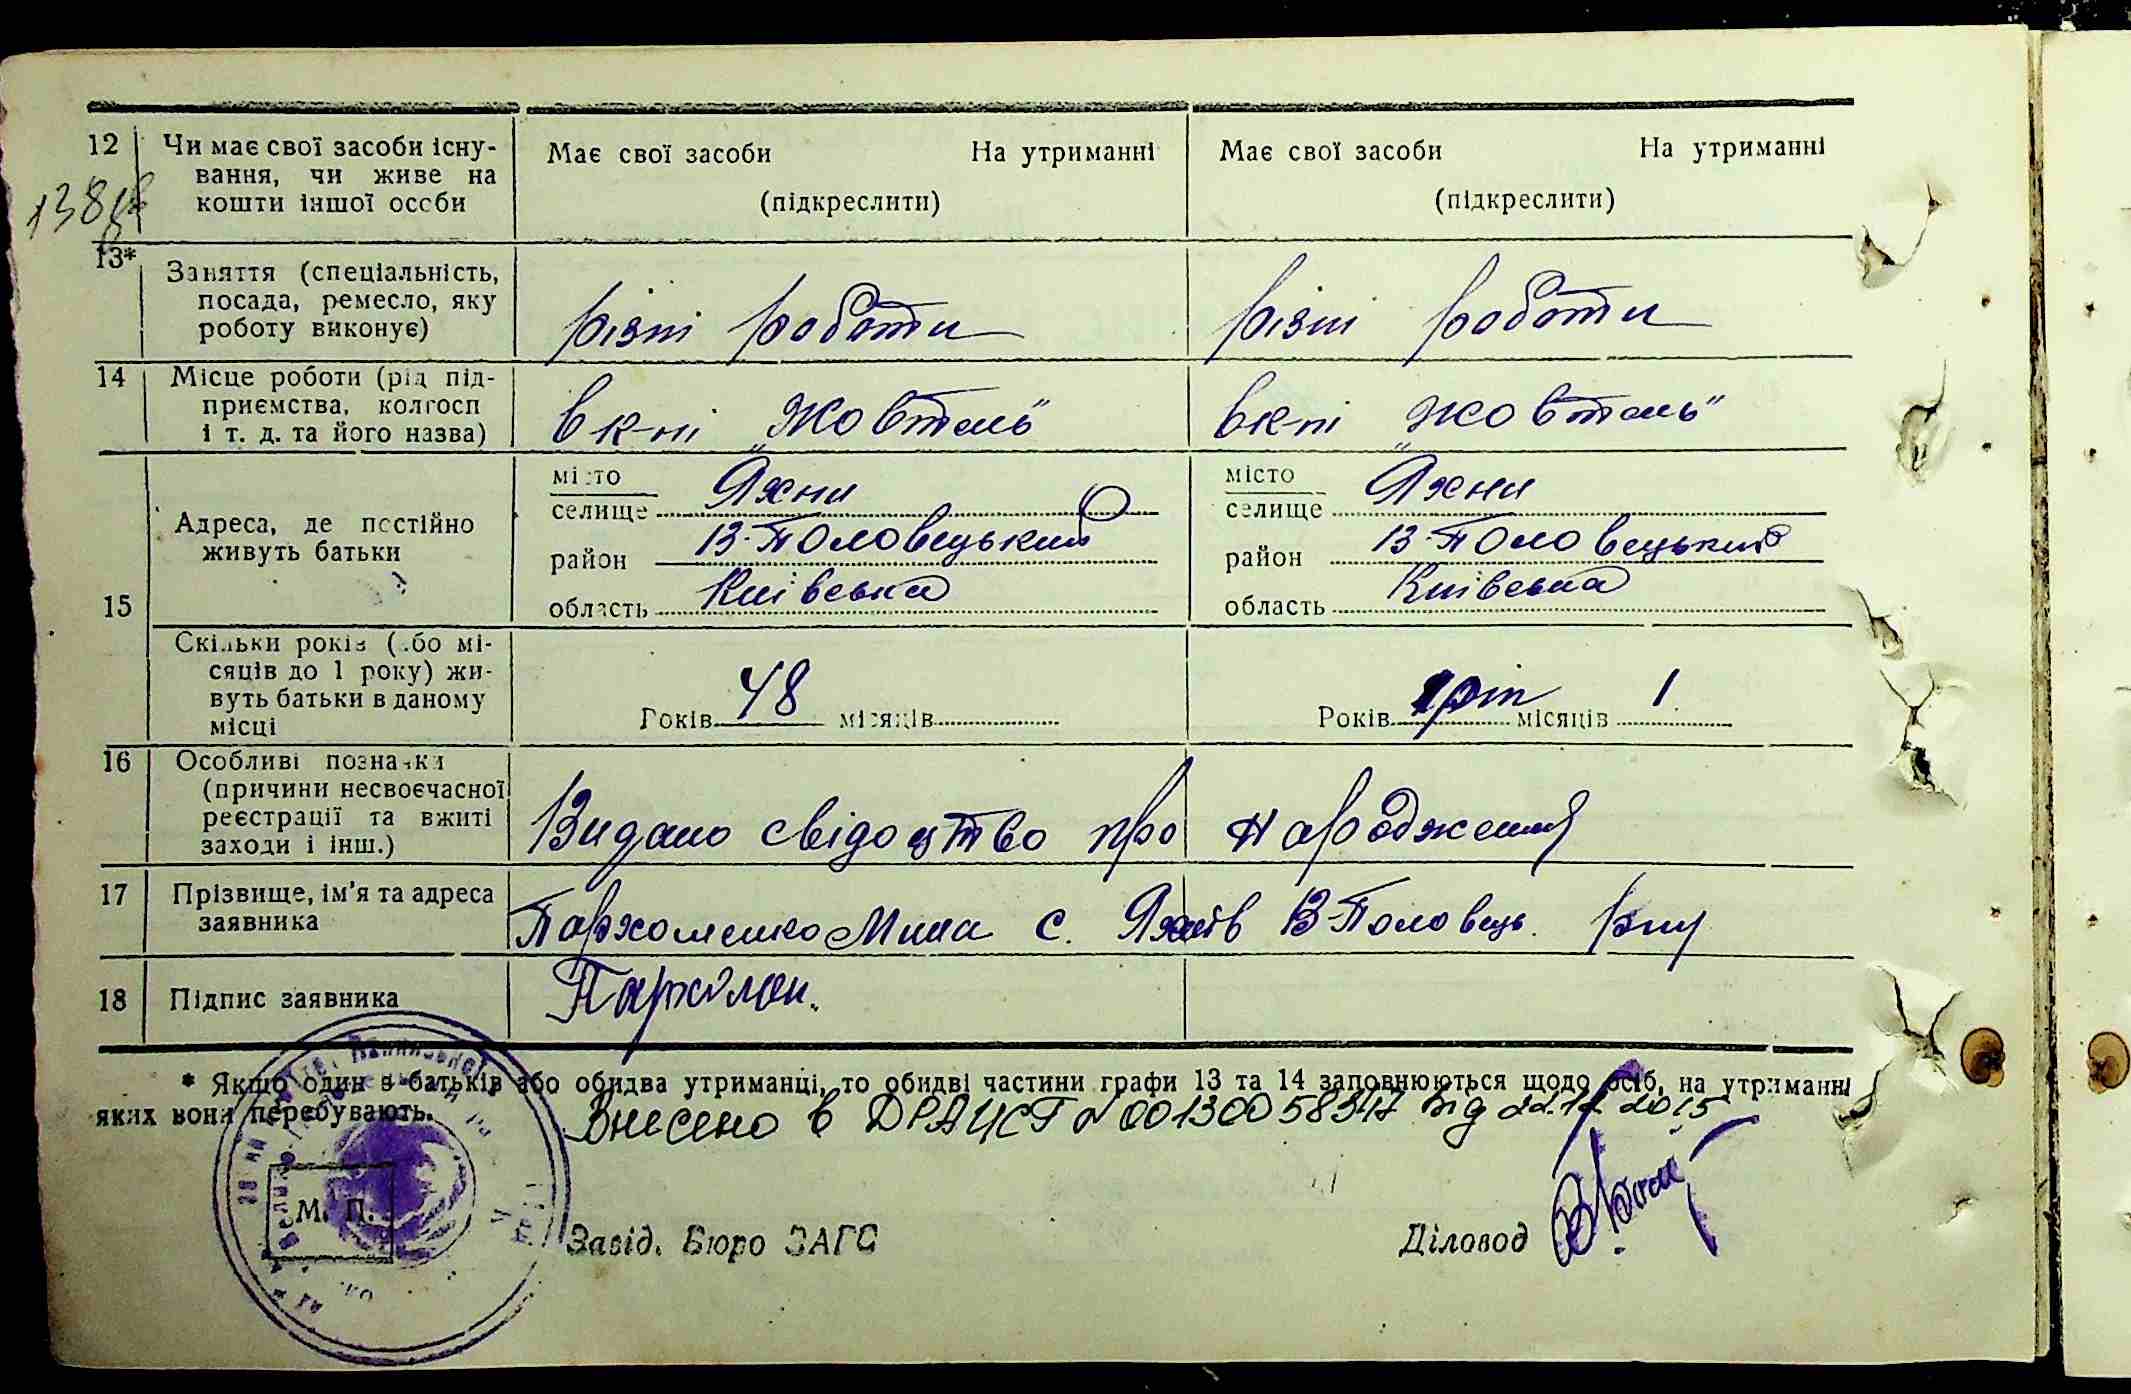 12 Чи має свої засоби існу-
вання, чи живе на
кошти іншої особи
Має свої засоби На утриманні
(підкреслити)
Має свої засоби На утриманні
(підкреслити)
138
13* Заняття (спеціальність,
посада, ремесло, яку
роботу виконує)
різні роботи
різні роботи
14 Місце роботи (рід під-
приємства, колгосп
і т. д. та його назва)
в к-пі „Жовтень"
в к-пі „Жовтень"
15 Адреса, де постійно
живуть батьки
місто
селище Яхни
район В-Половецький
область Київська
місто
селище Яхни
район В-Половецький
область Київська
Скільки років (або мі-
сяців до 1 року) жи-
вуть батьки в даному
місці
Років 48 місяців
Років 1 рік місяців 1
16 Особливі позначки
(причини несвоєчасної
реєстрації та вжиті
заходи і інш.)
Видано свідоцтво про народження
17 Прізвище, ім'я та адреса
заявника
Пархоменко с. Яхнів В-Половець. р-ну
18 Підпис заявника
Пархомен.
* Якщо один з батьків або обидва утриманці, то обидві частини графи 13 та 14 заповнюються щодо осіб, на утриманні
яких вони перебувають.
Внесено в ДРАЦСГ № 00130058347 від 2015
М. П.
Завід. Бюро ЗАГС
Діловод